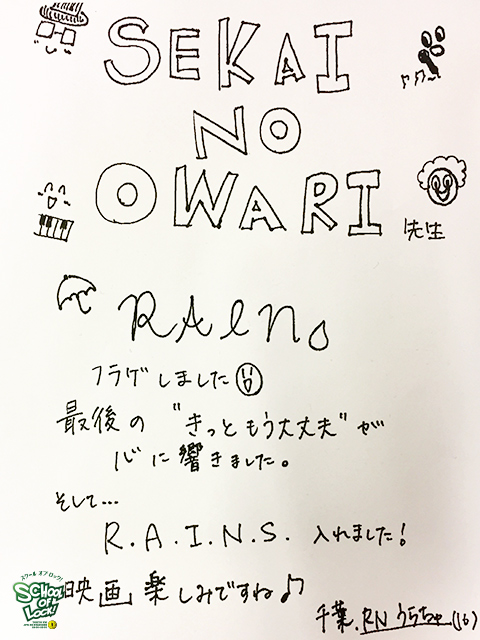 SEKAI
NO
OWARI
先生
RAIN。
フラゲしました
最後の "きっともう大丈夫" が
心に響きました。
そして…
R.A.I.N.S. 入れました!
映画 楽しみですね♪
千葉.RN うらちゃ(16)
スクール オブ ロック!
SCHOOL
OF
LOCK!